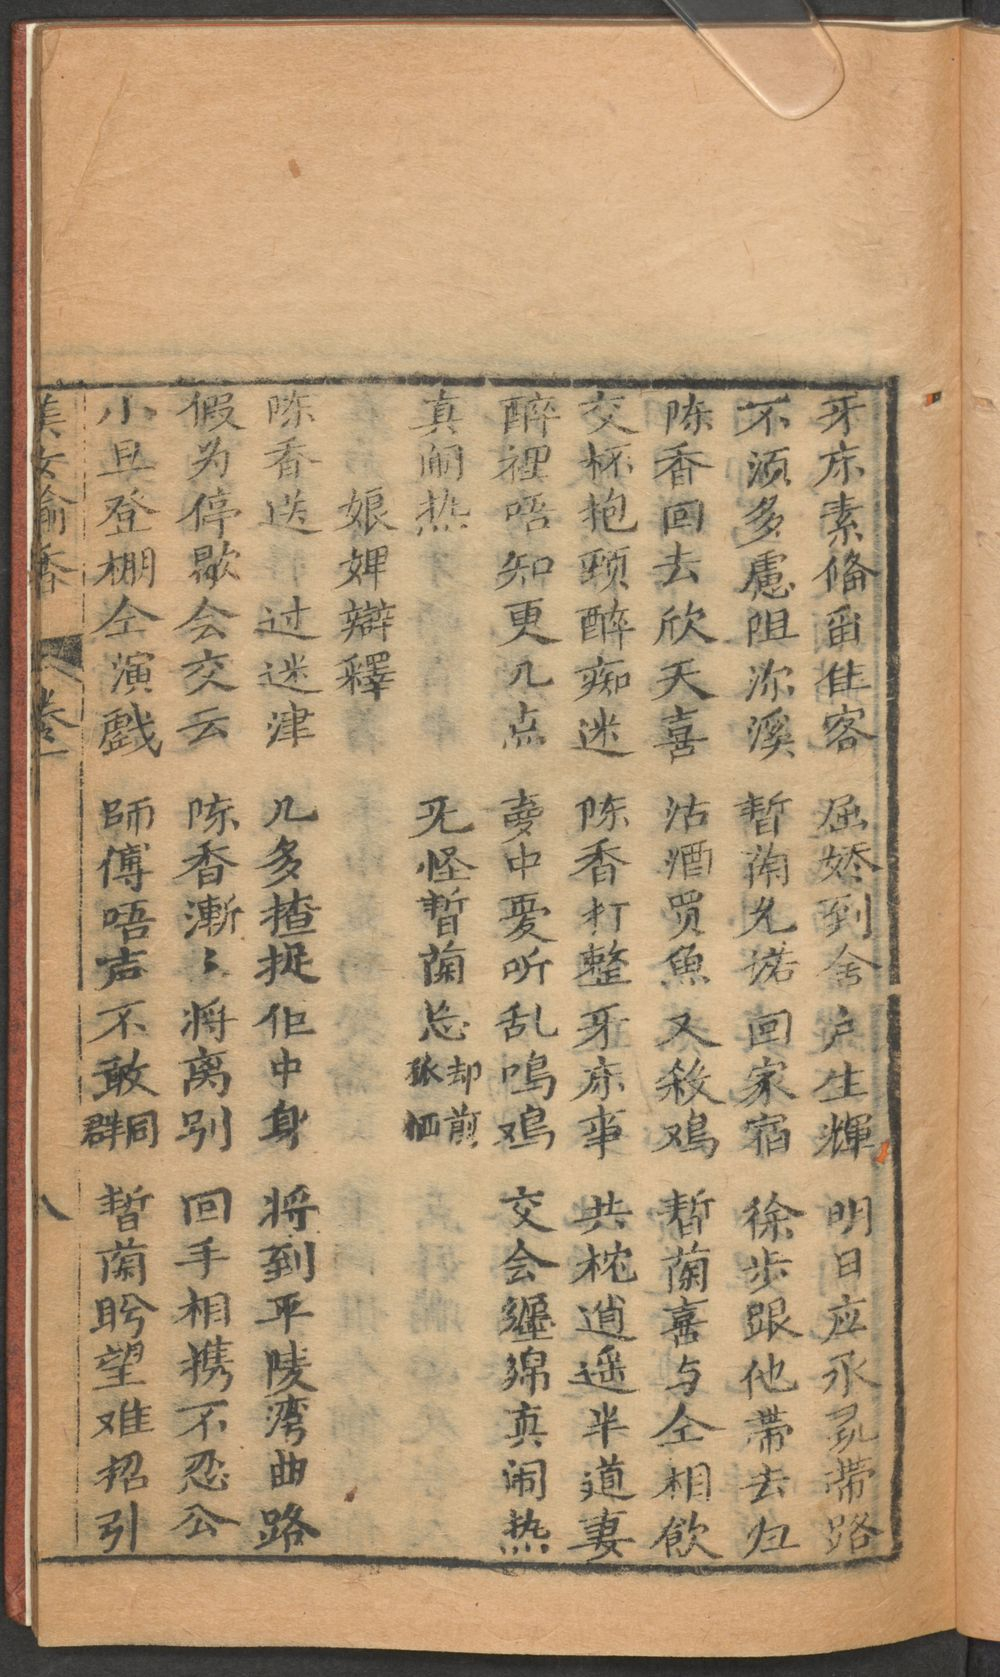 牙床素俻畱隹客　屈娇到舍户生輝　明日应承亲帶路
不須多慮阻深溪　暂蘭允诺回家宿　徐步跟他帶去归
陈香回去欣天喜　沽酒买魚又殺鸡　暂蘭喜与仝相飲
交杯抱頸醉痴迷　陈香打整牙床亊　共枕逍遥半道妻
醉裡唔知更几点　夢中憂听乱鳴鸡　交会纒绵真闹热
真闹热　无怪暂蘭忘却前
娘婢辯釋
陈香送过迷津　几多揸捉佢中身　将到平陵湾曲路
假为停歇会交云　陈香漸〻将离别　回手相携不忍公
小旦登棚仝演戲　師傅唔声不敢同群　暂蘭盼望难招引
美女偷香　卷一　八